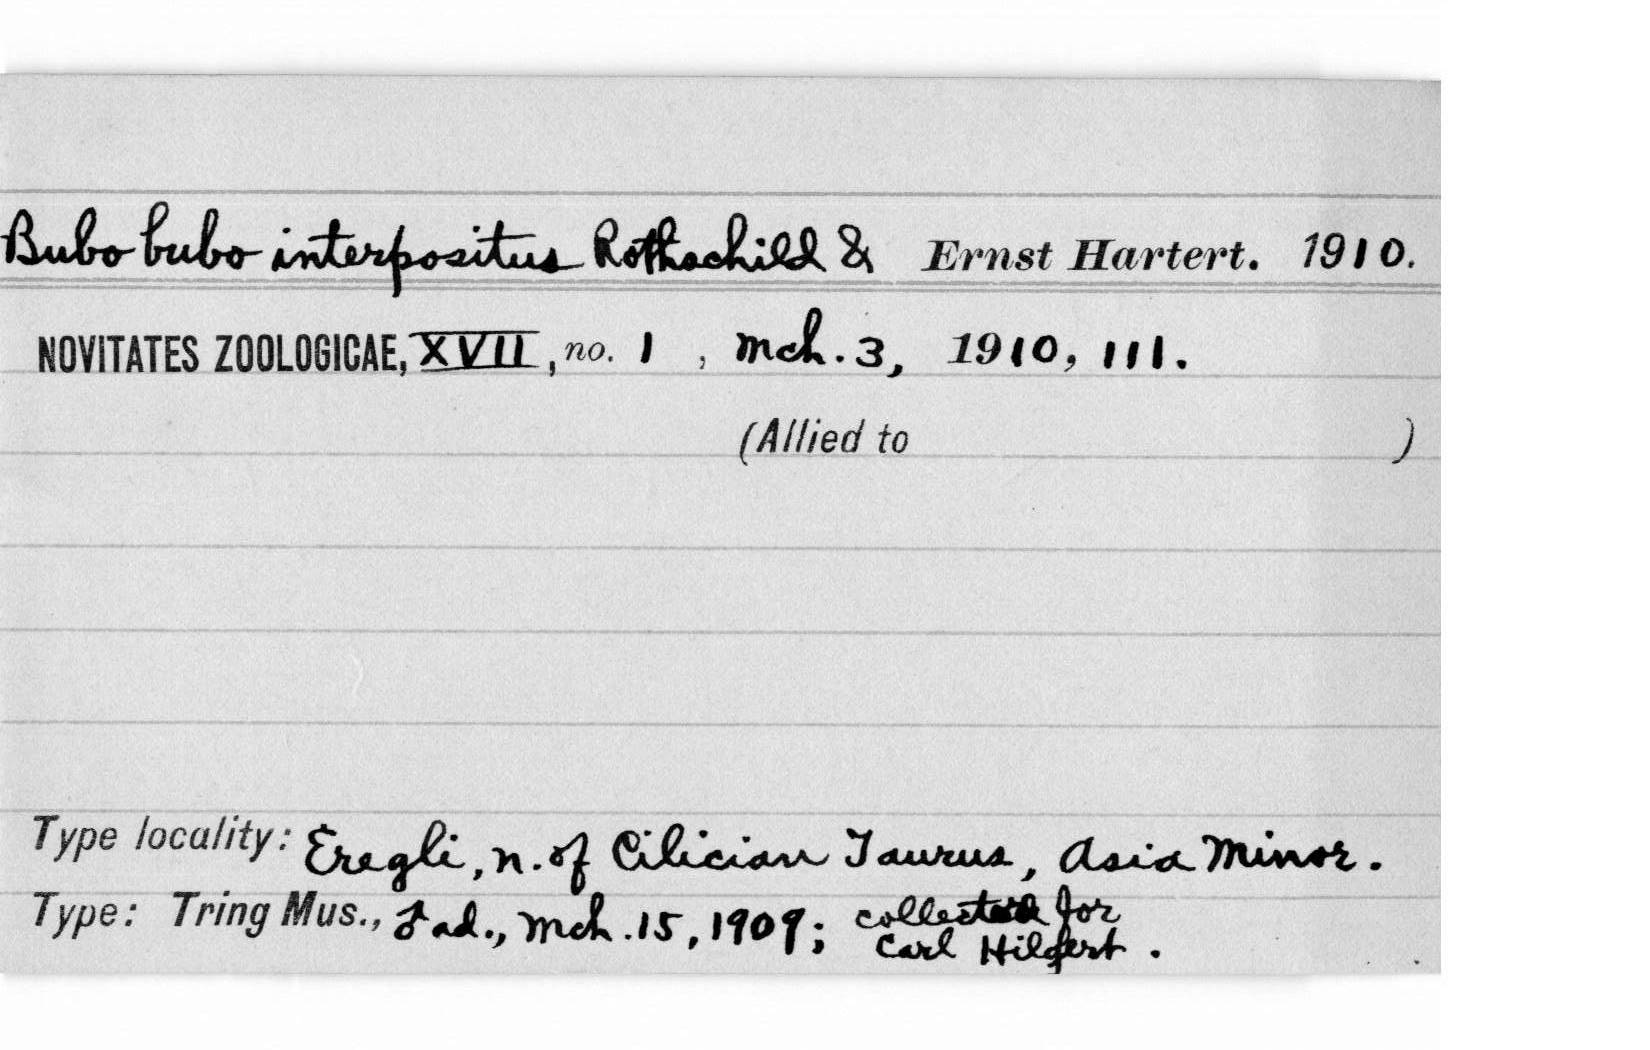 Bubo bubo interpositus Rothschild & Ernst Hartert. 1910.
NOVITATES ZOOLOGICAE, XVII, no. 1 , Mch. 3, 1910, 111.
(Allied to )
Type locality: Eregli, n. of Cilician Taurus, Asia Minor.
Type: Tring Mus., ad., Mch. 15, 1909; collected for
Carl Hilgert.